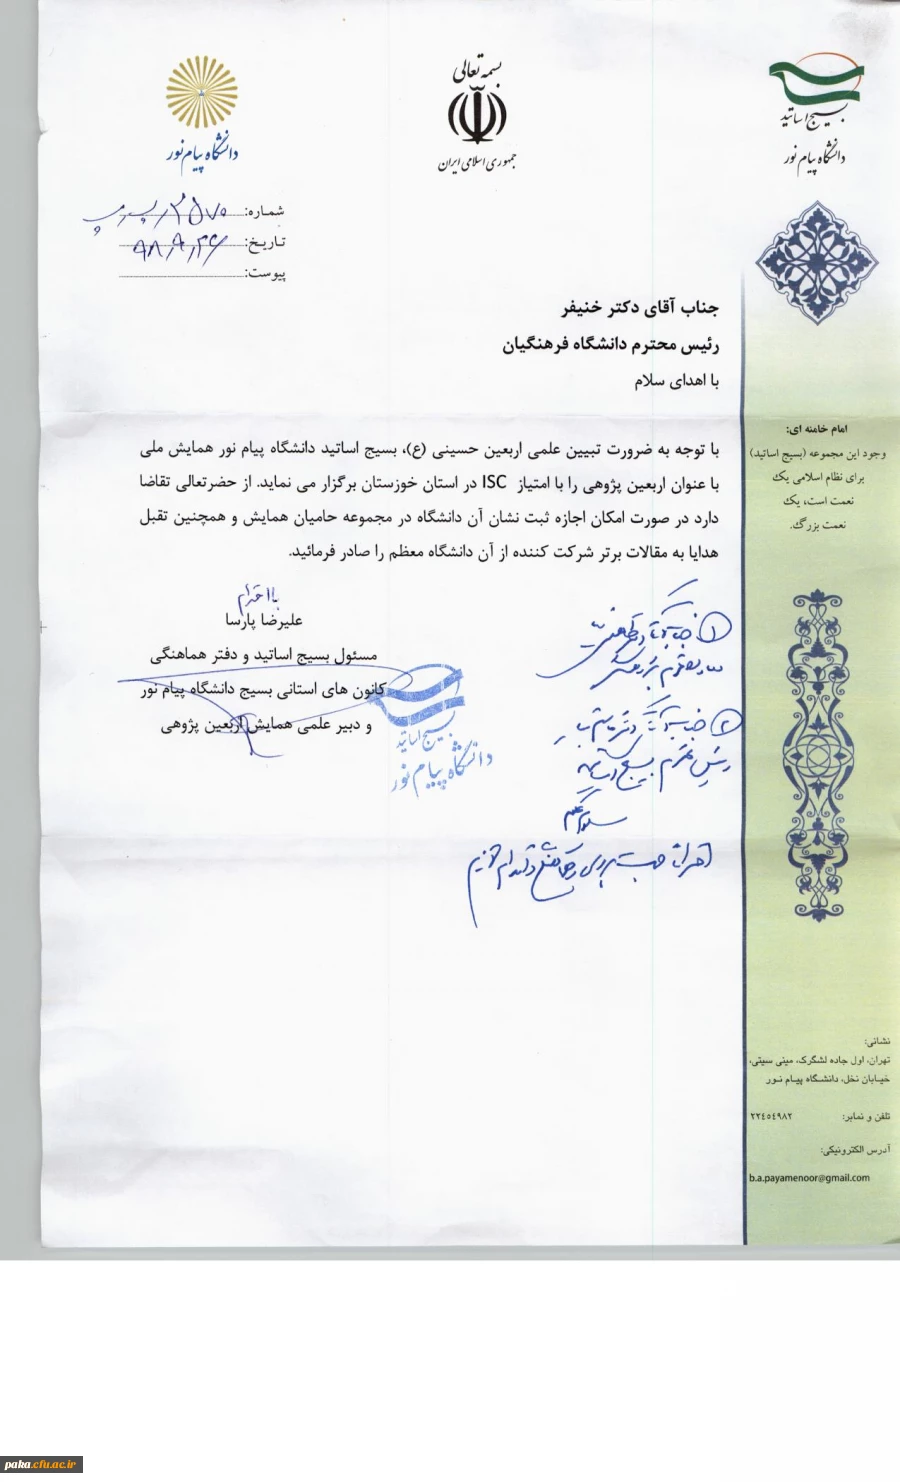 بسمه تعالی
جمهوری اسلامی ایران
بسیج اساتید
دانشگاه پیام نور
دانشگاه پیام نور
شماره: ۳۵۷۰
تاریخ: ۹۸,۹,۲۶
پیوست:
جناب آقای دکتر خنیفر
رئیس محترم دانشگاه فرهنگیان
با اهدای سلام
با توجه به ضرورت تبیین علمی اربعین حسینی (ع)، بسیج اساتید دانشگاه پیام نور همایش ملی
با عنوان اربعین پژوهی را با امتیاز ISC در استان خوزستان برگزار می نماید. از حضرتعالی تقاضا
دارد در صورت امکان اجازه ثبت نشان آن دانشگاه در مجموعه حامیان همایش و همچنین تقبل
هدایا به مقالات برتر شرکت کننده از آن دانشگاه معظم را صادر فرمائید.
با احترام
علیرضا پارسا
مسئول بسیج اساتید و دفتر هماهنگی
کانون های استانی بسیج دانشگاه پیام نور
و دبیر علمی همایش اربعین پژوهی
بسیج اساتید
دانشگاه پیام نور
۱ جناب آقای دکتر
۲ جناب آقای دکتر
رئیس محترم بسیج اساتید
سلام علیکم
احتراماً جهت بررسی و اقدام
امام خامنه ای:
وجود این مجموعه (بسیج اساتید)
برای نظام اسلامی یک
نعمت است، یک
نعمت بزرگ.
نشانی:
تهران، اول جاده لشگرک، مینی سیتی،
خیابان نخل، دانشگاه پیام نور
تلفن و نمابر: ۲۲۴۵۴۹۸۲
آدرس الکترونیکی:
b.a.payamenoor@gmail.com
paka.cfu.ac.ir